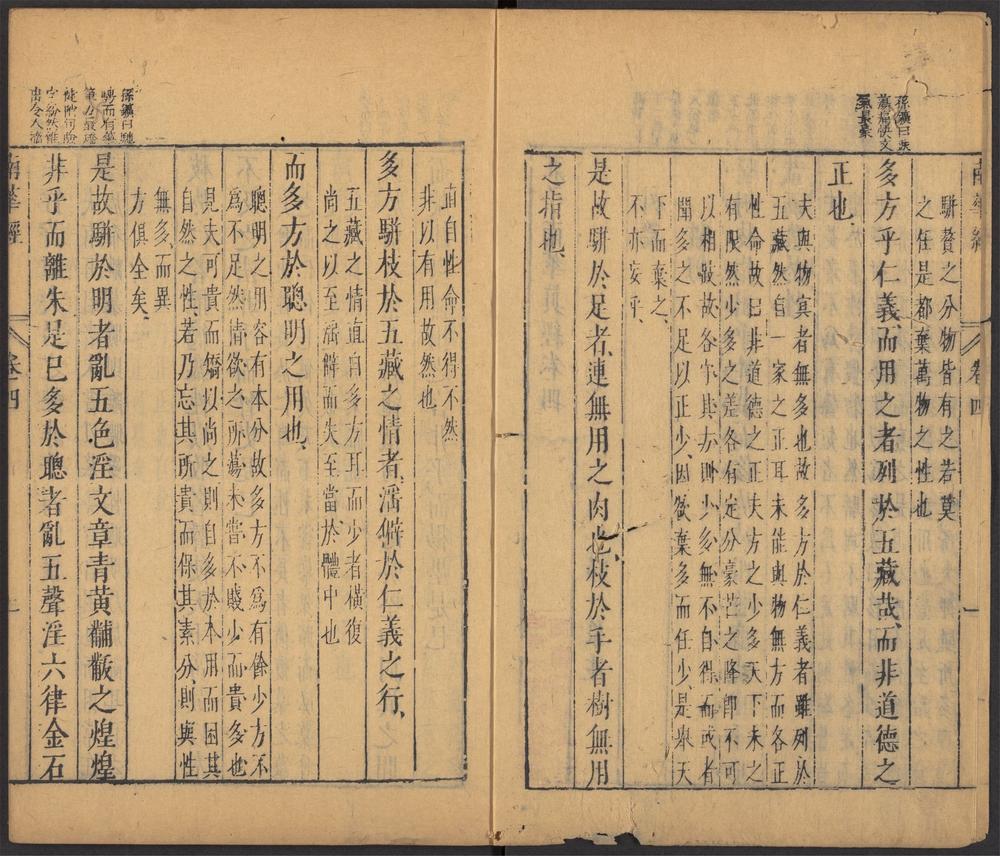 孫鑛曰㳀
篇快文
駢贅之分物皆有之若莫
之任是都棄萬物之性也
多方乎仁義、而用之者列於五藏哉、而非道德之
正也、
夫與物冥者無多也故多方於仁義者雖列於
五藏然自一家之正耳未能與物無方而各正
性命故曰非道德之正夫方之少多天下未之
有限然少多之差各有定分豪芒之際即不可
以相跂故各守其方則少多無不自得而或者
聞多之不足以正少因欲棄多而任少是舉天
下而棄之、
不亦妄乎、
是故駢於足者、連無用之肉也、枝於手者樹無用
之指也、
直自性命不得不然
非以有用故然也
多方駢枝於五藏之情者、淫僻於仁義之行、
五藏之情直自多方耳而少者橫復
尚之以至淫僻而失至當於體中也
而多方於聰明之用也、
聰明之用各有本分故多方不為有餘少方不
為不足然情欲之所蕩未嘗不賤少而貴多也
見夫可貴而矯以尚之則自多於本用而困其
自然之性若乃忘其所貴而保其素分則與性
無多而異
方俱全矣、
是故駢於明者亂五色淫文章青黃黼黻之煌煌
非乎而離朱是已多於聰者亂五聲淫六律金石
南華經 卷四